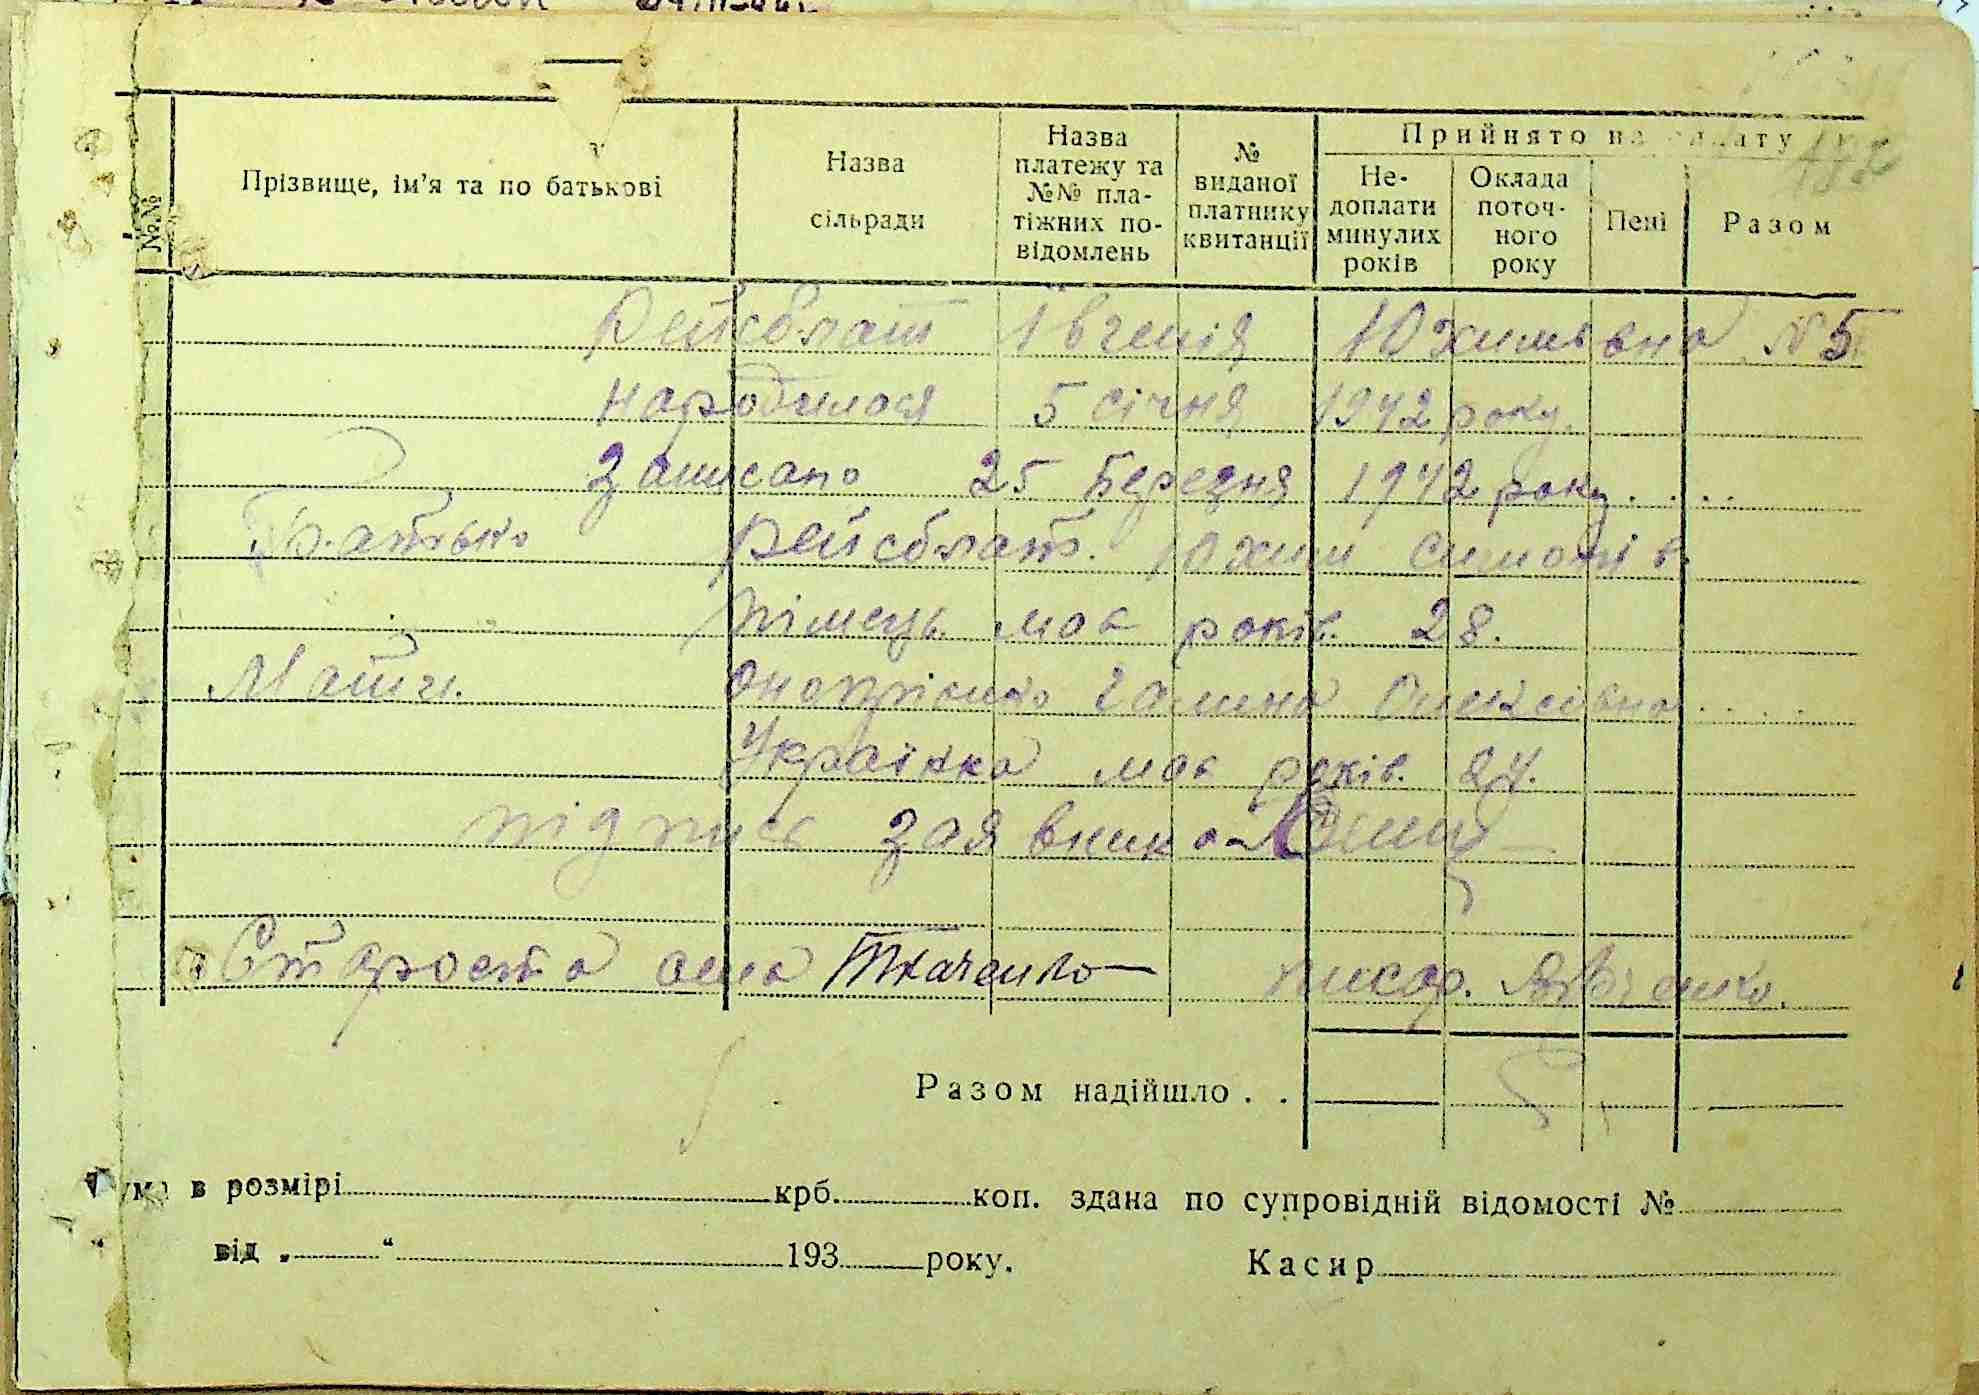 №№
Прізвище, ім'я та по батькові
Назва
сільради
Назва
платежу та
№№ пла-
тіжних по-
відомлень
№
виданої
платнику
квитанції
Прийнято на
Не-
доплати
минулих
років
Оклада
поточ-
ного
року
Пені
Разом
Рейсблат Івгенія Юхимівна N 5
народилася 5 січня 1942 року.
Записано 25 Березня 1942 року....
Батько Рейсблат. Юхим Симонів.
німець має років. 28.
Мати. Онопрієнко Галина Олексієвна....
Українка має років. 24.
підпись заявника
Староста села Ткаченко писар.
Разом надійшло . .
в розмірі крб. коп. здана по супровідній відомості №
від „ “ 193 року. Касир